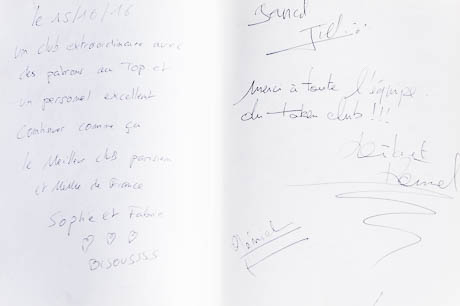 le 15/10/16
Un club extraordinaire avec
des patrons au Top et
un personel excellent
Continuer comme ça
le Meilleur club parisien
et Même de France
Sophie et Fabrice
Bisoussss
Merci à toute l'équipe
du token club !!!